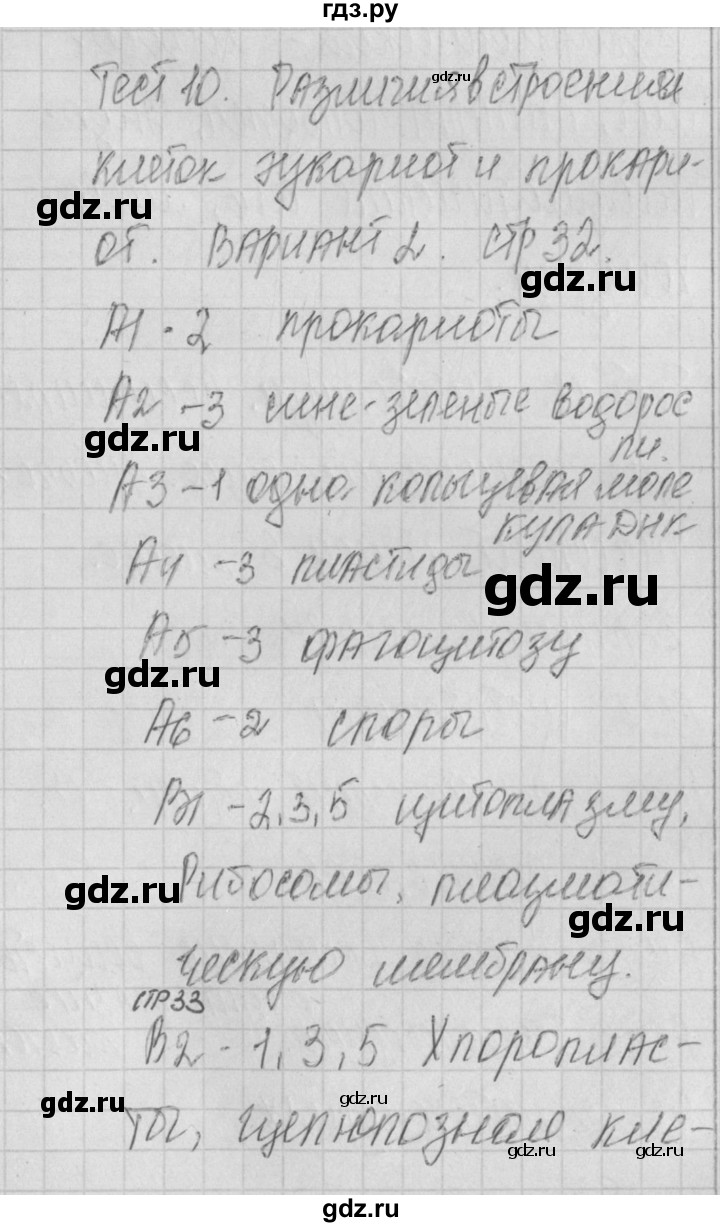 гдз.ру
Тест 10. Различия в строении
gdz.ru
клеток эукариот и прокари-
gdz.ru
от. Вариант 2. стр 32.
gdz.ru
А1 - 2 прокариоты
А2 - 3 сине-зеленые водорос
ли.
gdz.ru
А3 - 1 одна кольцевая моле
кула ДНК
А4 - 3 пластиды
gdz.ru
А5 - 3 фагоцитозу
gdz.ru
А6 - 2 споры
В1 - 2, 3, 5 цитоплазму,
gdz.ru
Рибосомы, плазмати-
gdz.ru
ческую мембрану.
стр 33
В2 - 1, 3, 5 Хлороплас-
gdz.ru
gdz.ru
ты, целлюлозная кле-
gdz.ru
gdz.ru
gdz.ru